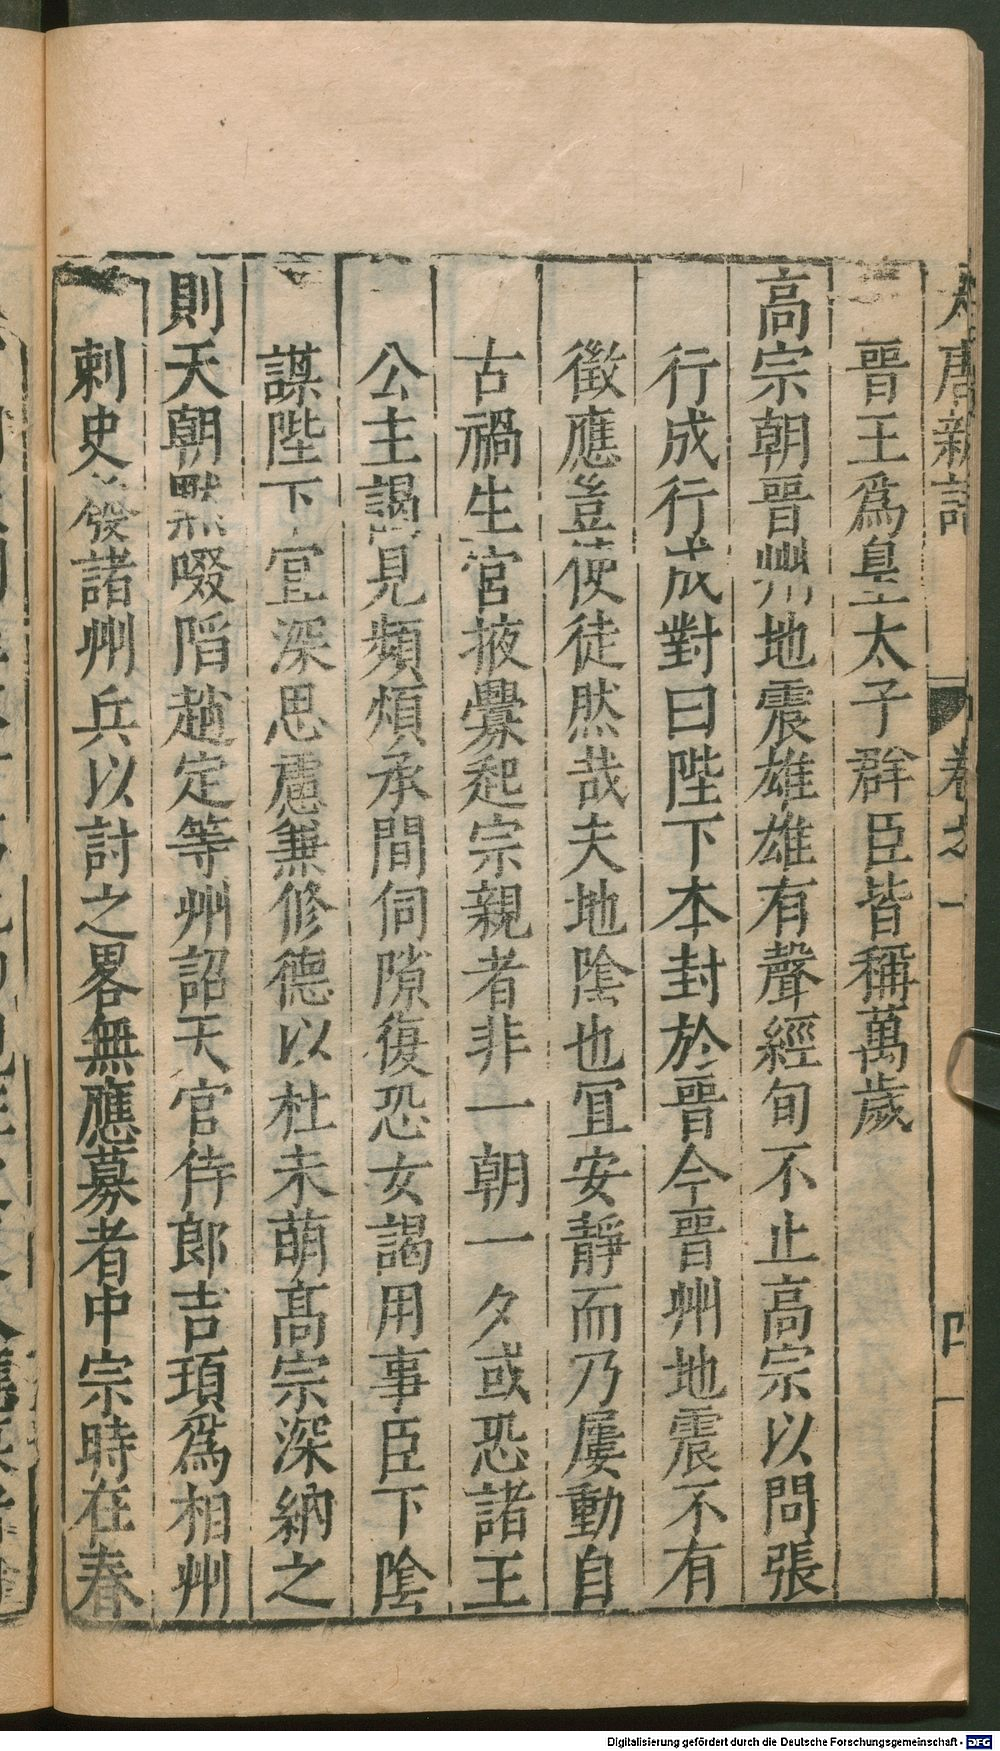 大唐新語 卷之一 四
晉王爲皇太子群臣皆稱萬歲
高宗朝晉州地震雄雄有聲經旬不止高宗以問張
行成行成對曰陛下本封於晉今晉州地震不有
徵應豈使徒然哉夫地陰也宜安靜而乃屢動自
古禍生宮掖釁起宗親者非一朝一夕或恐諸王
公主謁見頻煩承間伺隙復恐女謁用事臣下陰
謀陛下宜深思慮兼修德以杜未萌高宗深納之
則天朝默啜陷趙定等州詔天官侍郎吉頊爲相州
刺史發諸州兵以討之畧無應募者中宗時在春
Digitalisierung gefördert durch die Deutsche Forschungsgemeinschaft - DFG